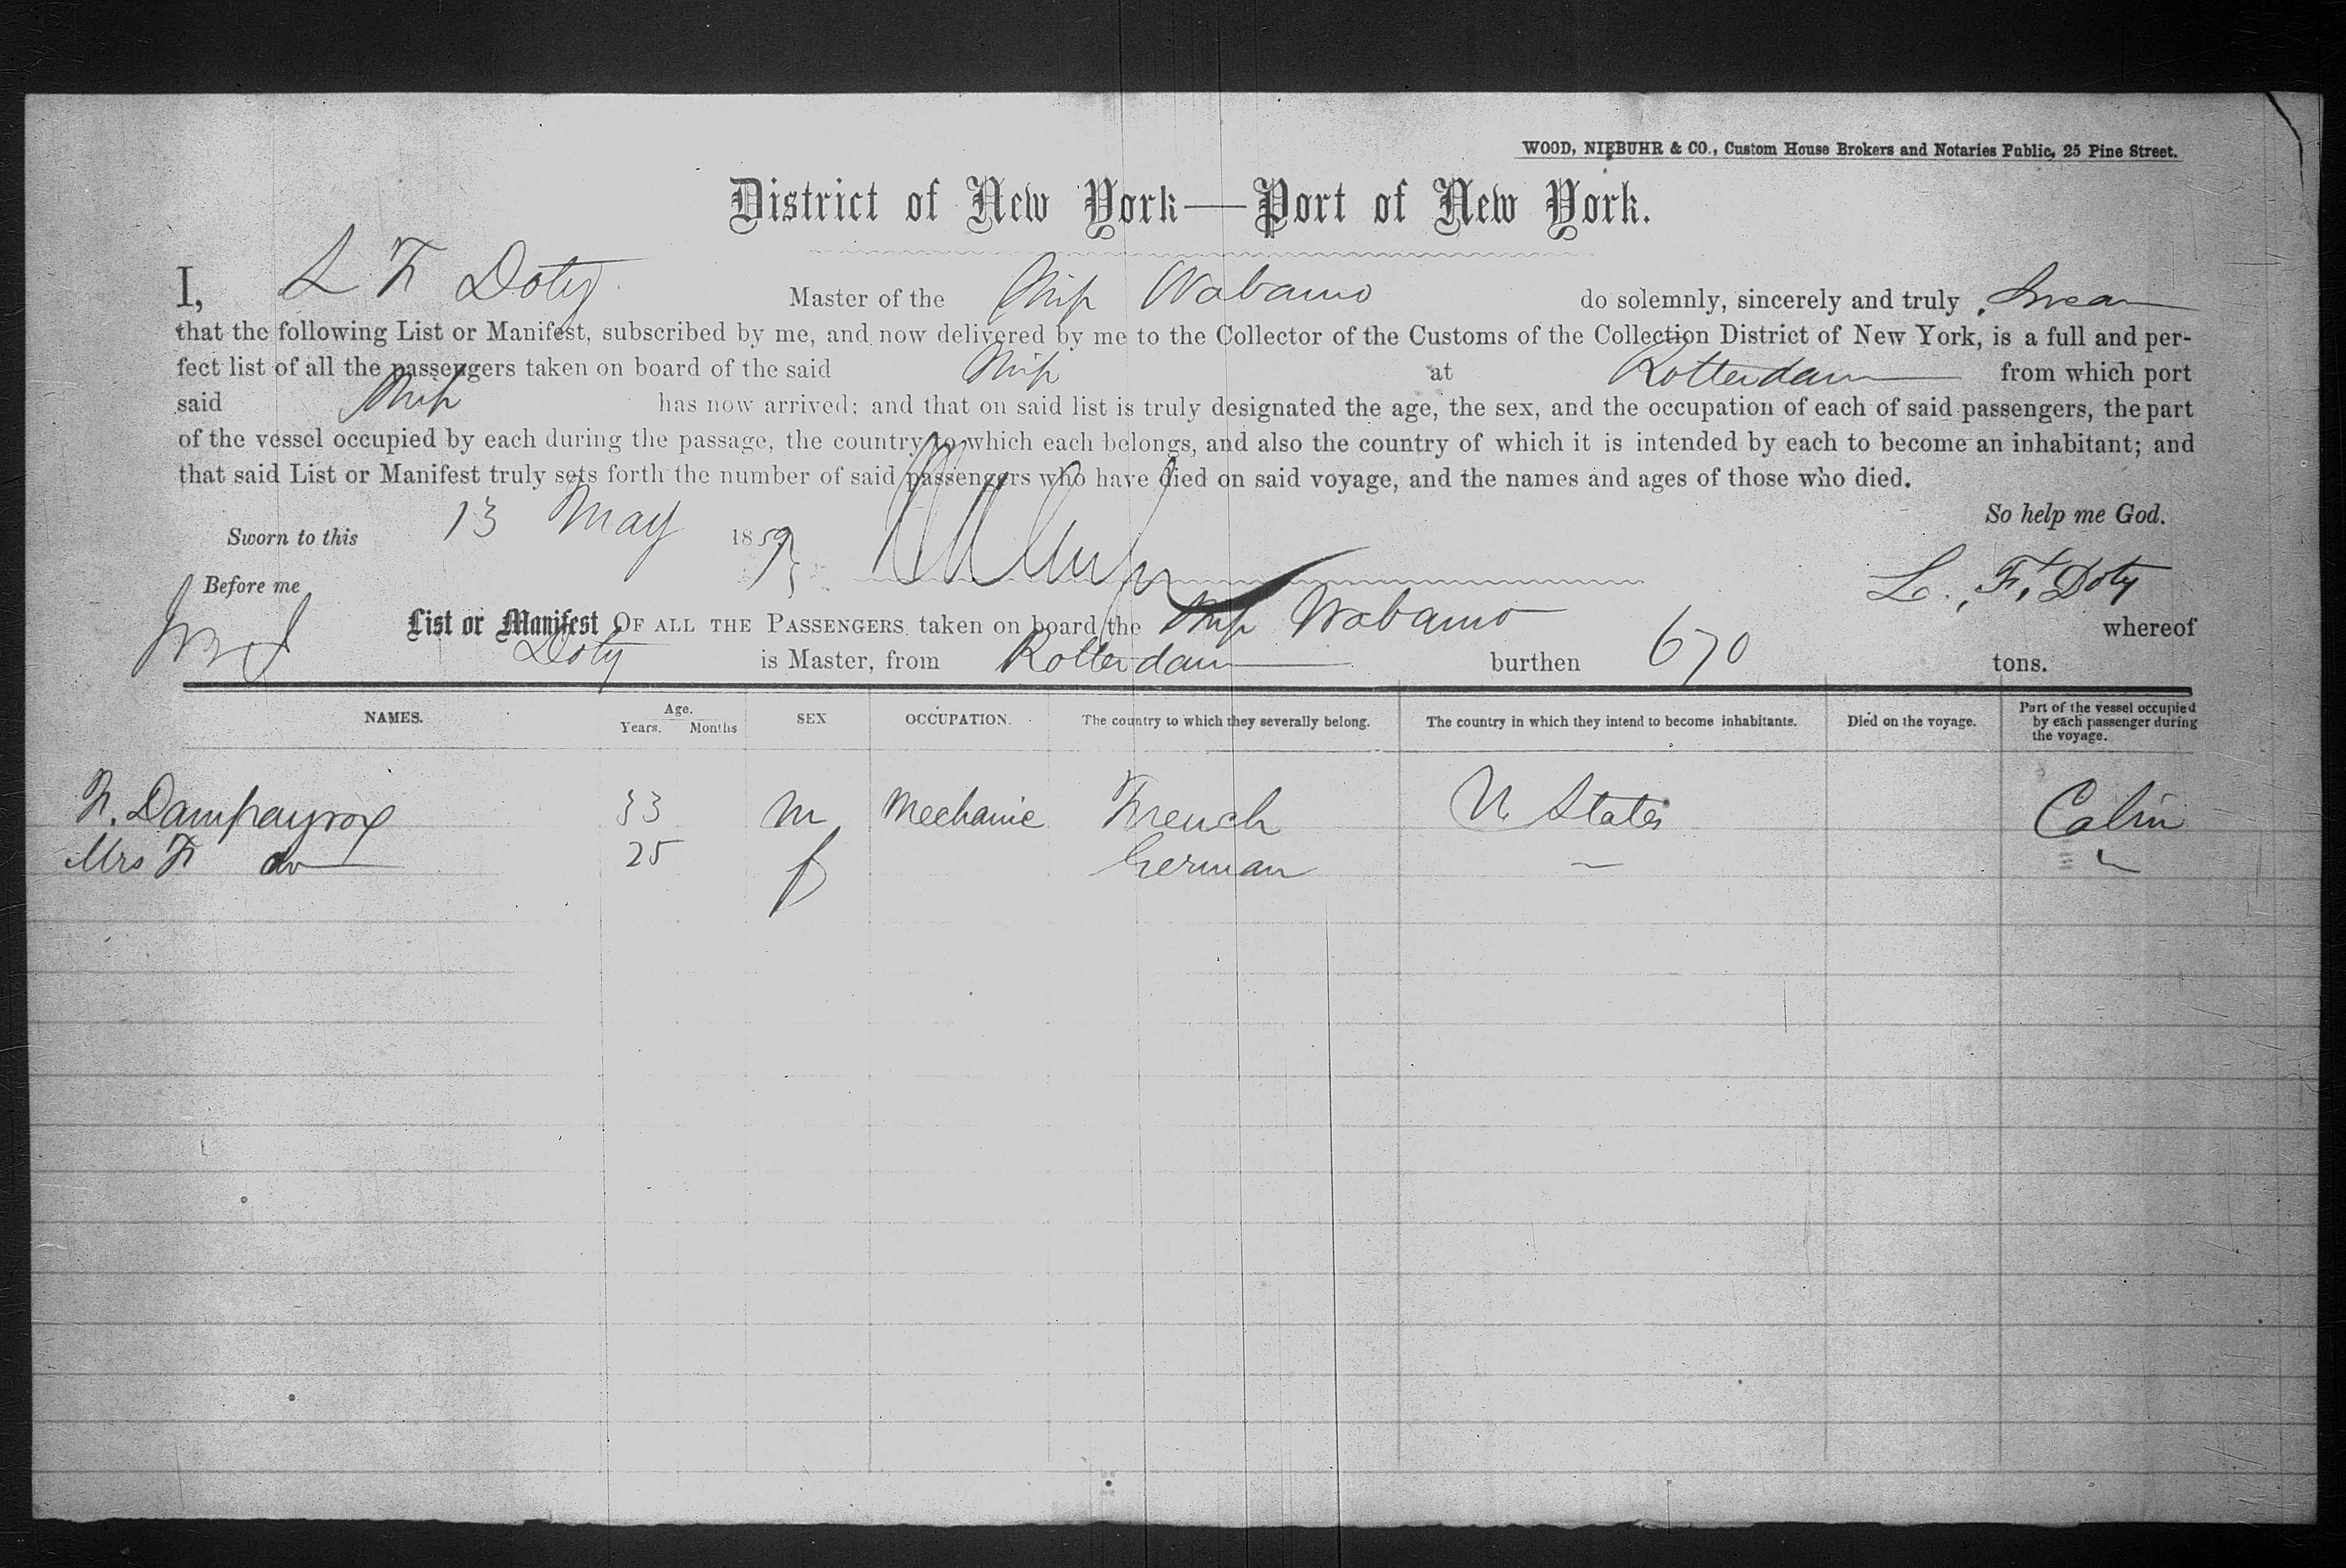 WOOD, NIEBUHR & CO., Custom House Brokers and Notaries Public, 25 Pine Street.
District of New York—Port of New York.
I, L F Doty Master of the Ship Wabamo do solemnly, sincerely and truly swear
that the following List or Manifest, subscribed by me, and now delivered by me to the Collector of the Customs of the Collection District of New York, is a full and per-
fect list of all the passengers taken on board of the said Ship at Rotterdam from which port
said Ship has now arrived; and that on said list is truly designated the age, the sex, and the occupation of each of said passengers, the part
of the vessel occupied by each during the passage, the country to which each belongs, and also the country of which it is intended by each to become an inhabitant; and
that said List or Manifest truly sets forth the number of said passengers who have died on said voyage, and the names and ages of those who died.
So help me God.
Sworn to this 13 May 1859
Before me L. F. Doty
List or Manifest OF ALL THE PASSENGERS taken on board the Ship Wabamo whereof
Doty is Master, from Rotterdam burthen 670 tons.
NAMES. Age. Years. Months SEX OCCUPATION. The country to which they severally belong. The country in which they intend to become inhabitants. Died on the voyage. Part of the vessel occupied by each passenger during the voyage.
F. Dampayrox 33 m Mechanic French U States Cabin
Mrs F do 25 f German